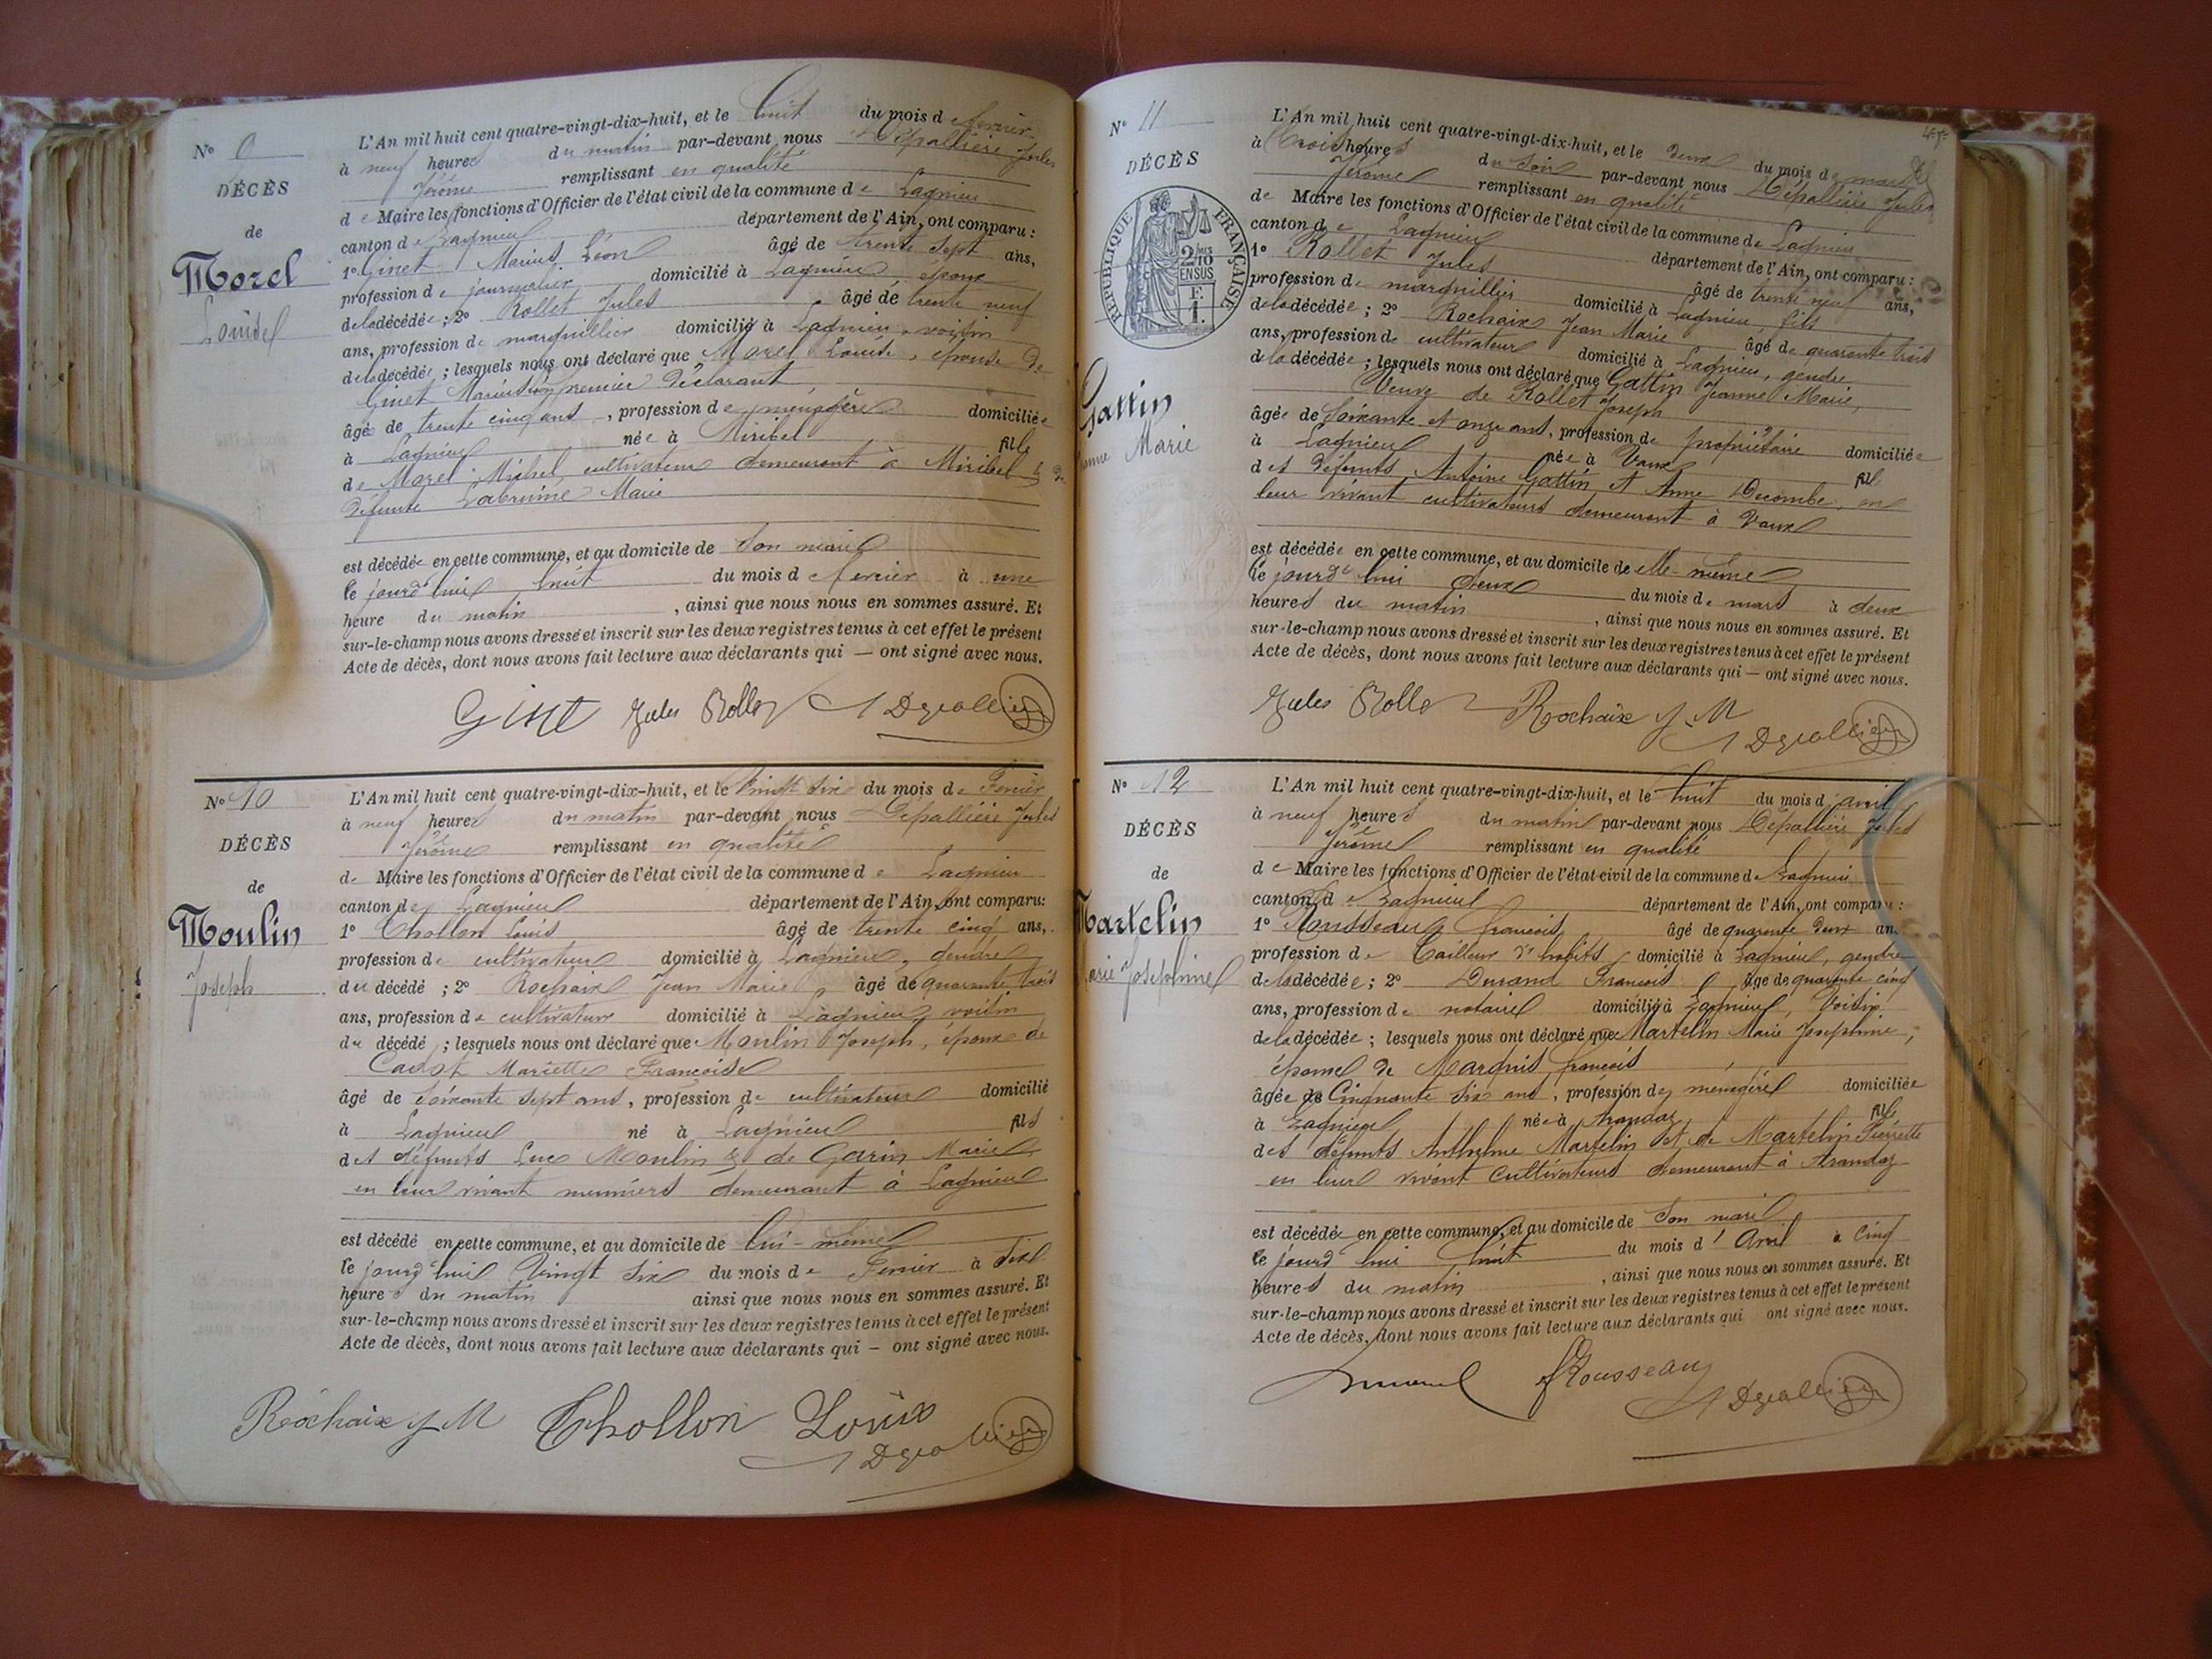 N°
DÉCÈS
de
Morel
Louise
L'An mil huit cent quatre-vingt-dix-huit, et le huit du mois de fevrier
à neuf heures du matin par-devant nous Dépallière Jules
Jérôme remplissant en qualité
de Maire les fonctions d'Officier de l'état civil de la commune de Lagnieu
canton de Lagnieu département de l'Ain, ont comparu :
1° Ginet Marius Léon âgé de trente sept ans,
profession de journalier domicilié à Lagnieu époux
de la décédée ; 2° Rollet Jules âgé de trente neuf
ans, profession de marguillier domicilié à Lagnieu, voisin
de la décédée ; lesquels nous ont déclaré que Morel Louise, épouse de
Ginet Marius Léon premier déclarant
âgée de trente cinq ans, profession de ménagère domiciliée
à Lagnieu née à Miribel fille
de Morel Michel, cultivateur demeurant à Miribel & de
défunte Labruine Marie
est décédée en cette commune, et au domicile de son mari
le jourd'hui huit du mois de fevrier à une
heure du matin, ainsi que nous nous en sommes assuré. Et
sur-le-champ nous avons dressé et inscrit sur les deux registres tenus à cet effet le présent
Acte de décès, dont nous avons fait lecture aux déclarants qui — ont signé avec nous.
Ginet Jules Rollet
N° 10
DÉCÈS
de
Moulin
Joseph
L'An mil huit cent quatre-vingt-dix-huit, et le vingt six du mois de Fevrier
à neuf heures du matin par-devant nous Dépallière Jules
Jérôme remplissant en qualité
de Maire les fonctions d'Officier de l'état civil de la commune de Lagnieu
canton de Lagnieu département de l'Ain, ont comparu :
1° Chollon Louis âgé de trente cinq ans,
profession de cultivateur domicilié à Lagnieu, gendre
du décédé ; 2° Rochaix Jean Marie âgé de quarante trois
ans, profession de cultivateur domicilié à Lagnieu, voisin
du décédé ; lesquels nous ont déclaré que Moulin Joseph, époux de
Mariette Françoise
âgé de soixante sept ans, profession de cultivateur domicilié
à Lagnieu né à Lagnieu fils
des défunts Luc Moulin & de Garin Marie
en leur vivant meuniers demeurant à Lagnieu
est décédé en cette commune, et au domicile de lui-même
le jourd'hui vingt six du mois de Fevrier à six
heures du matin ainsi que nous nous en sommes assuré. Et
sur-le-champ nous avons dressé et inscrit sur les deux registres tenus à cet effet le présent
Acte de décès, dont nous avons fait lecture aux déclarants qui — ont signé avec nous.
Rochaix J M Chollon Louis
N° 11
DÉCÈS
RÉPUBLIQUE FRANÇAISE
2/10 EN SUS
F. 1.
Gattin
Marie
L'An mil huit cent quatre-vingt-dix-huit, et le deux du mois de mars
à trois heures du soir par-devant nous Dépallière Jules
Jérôme remplissant en qualité
de Maire les fonctions d'Officier de l'état civil de la commune de Lagnieu
canton de Lagnieu département de l'Ain, ont comparu :
1° Rollet Jules âgé de trente neuf ans,
profession de marguillier domicilié à Lagnieu, fils
de la décédée ; 2° Rochaix Jean Marie âgé de quarante trois
ans, profession de cultivateur domicilié à Lagnieu, gendre
de la décédée ; lesquels nous ont déclaré que Gattin Jeanne Marie,
Veuve de Rollet Joseph
âgée de soixante et onze ans, profession de propriétaire domiciliée
à Lagnieu née à Vaux fille
des défunts Antoine Gattin et Anne Decombe, en
leur vivant cultivateurs demeurant à Vaux
est décédée en cette commune, et au domicile de elle-même
le jourd'hui deux du mois de mars à deux
heures du matin, ainsi que nous nous en sommes assuré. Et
sur-le-champ nous avons dressé et inscrit sur les deux registres tenus à cet effet le présent
Acte de décès, dont nous avons fait lecture aux déclarants qui — ont signé avec nous.
Jules Rollet Rochaix J. M
N° 12
DÉCÈS
de
Martelin
Marie Joséphine
L'An mil huit cent quatre-vingt-dix-huit, et le huit du mois d'avril
à neuf heures du matin par-devant nous Dépallière Jules
Jérôme remplissant en qualité
de Maire les fonctions d'Officier de l'état civil de la commune de Lagnieu
canton de Lagnieu département de l'Ain, ont comparu :
1° Rousseau François âgé de quarante deux ans
profession de Tailleur d'habits domicilié à Lagnieu, gendre
de la décédée ; 2° Durand François âgé de quarante cinq
ans, profession de notaire domicilié à Lagnieu, voisin
de la décédée ; lesquels nous ont déclaré que Martelin Marie Joséphine,
épouse de Marquis François
âgée de Cinquante six ans, profession de ménagère domiciliée
à Lagnieu née à Arandaz fille
des défunts Anthelme Martelin et de Martelin Pierrette
en leur vivant cultivateurs demeurant à Arandaz
est décédée en cette commune, et au domicile de son mari
le jourd'hui huit du mois d'Avril à cinq
heures du matin, ainsi que nous nous en sommes assuré. Et
sur-le-champ nous avons dressé et inscrit sur les deux registres tenus à cet effet le présent
Acte de décès, dont nous avons fait lecture aux déclarants qui ont signé avec nous.
Rousseau